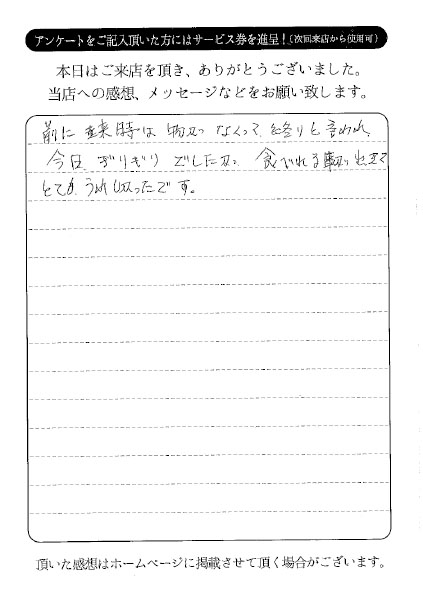 アンケートをご記入頂いた方にはサービス券を進呈！（次回来店から使用可）
本日はご来店を頂き、ありがとうございました。
当店への感想、メッセージなどをお願い致します。
前に 来た時は 物が なくって 終りと 言われ、
今日 ぎりぎり でしたが 食べれる事が出来て
とても うれしかったです。
頂いた感想はホームページに掲載させて頂く場合がございます。